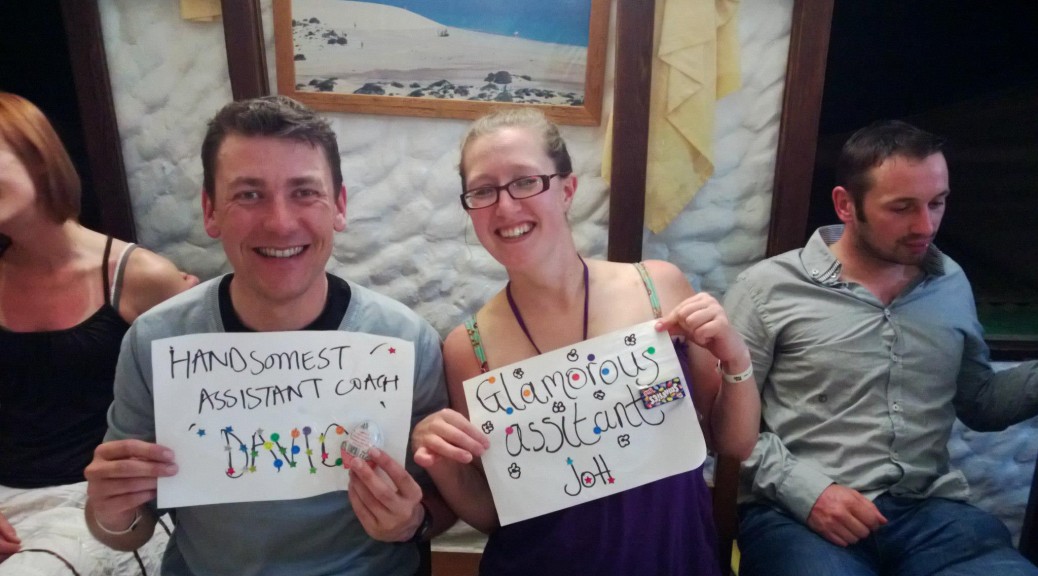 HANDSOMEST
ASSISTANT COACH
"DAVID
Glamorous
assitant
JoH